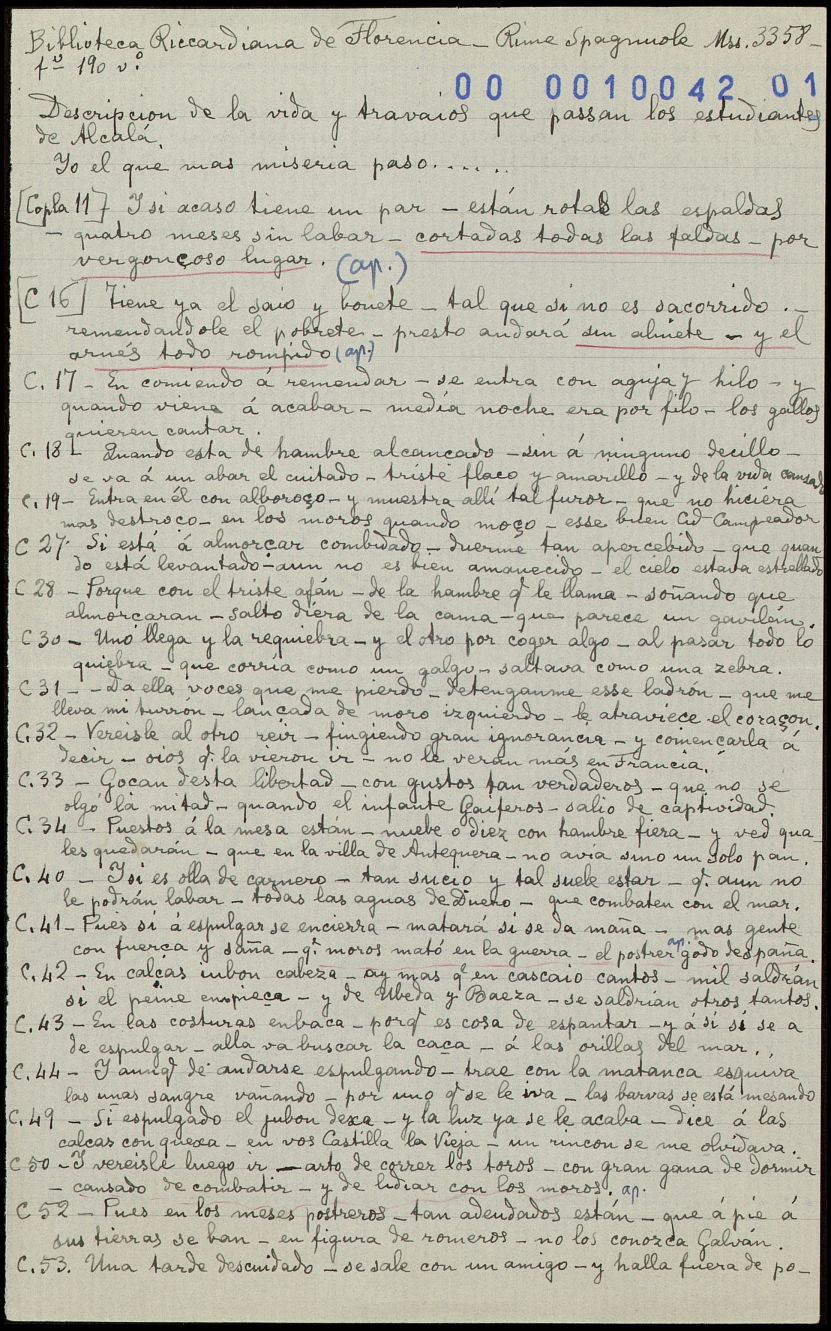 Biblioteca Riccardiana de Florencia - Rime Spagnuole Mss. 3358 -
fº 190 vº.
00 0010042 01
Descripcion de la vida y travaios que passan los estudiantes
de Alcalá.
Yo el que mas miseria paso......
[Copla 11] I si acaso tiene un par - están rotas las espaldas
- quatro meses sin labar - cortadas todas las faldas - por
vergonçoso lugar. (ap.)
[C 16] Tiene ya el saio y bonete - tal que si no es sacorrido. -
remendandole el pobrete - presto andará sin almete - y el
arnés todo rompido (ap.)
C. 17 - En comiendo á remendar - se entra con aguja y hilo - y
quando viene á acabar - media noche era por filo - los gallos
quieren cantar.
C. 18 - Quando esta de hambre alcancado - sin á ninguno decillo -
se va á un abar el cuitado - triste flaco y amarillo - y de la vida cansado
C. 19 - Entra en él con alboroço - y muestra allí tal furor - que no hiciera
mas destroco - en los moros quando moço - esse buen Cid Campeador
C 27. Si está á almorçar combidado - duerme tan apercebido - que quan
do está levantado - aun no es bien amanecido - el cielo estava estrellado
C 28 - Porque con el triste afán - de la hambre q̃ le llama - soñando que
almorçaran - salto diera de la cama - que parece un gavilán.
C 30 - Uno llega y la requiebra - y el otro por coger algo - al pasar todo lo
quiebra - que corría como un galgo - saltava como una zebra.
C 31 - - Da ella voces que me pierdo - detenganme esse ladrón - que me
lleva mi turrón - lancada de moro izquierdo - le atraviece el coraçon.
C. 32 - Vereisle al otro reir - fingiendo gran ignorancia - y comencarla á
decir - oios q̃ la vieron ir - no le veran más en Francia.
C. 33 - Gocan desta libertad - con gustos tan verdaderos - que no se
olgó la mitad - quando el infante Gaiferos - salio de captividad.
C. 34 - Puestos á la mesa están - nuebe o diez con hambre fiera - y ved qua-
les quedarán - que en la villa de Antequera - no avia sino un solo pan.
C. 40 - I si es olla de carnero - tan sucio y tal suele estar - q̃ aun no
le podrán labar - todas las aguas de Duero - que combaten con el mar.
C. 41 - Pues si á espulgar se encierra - matará si se da maña - mas gente
con fuerça y saña - q̃ moros mató en la guerra - el postrer ap. godo despaña.
C. 42 - En calças iubon cabeza - ay mas q̃ en cascaio cantos - mil saldrán
si el peine enpieça - y de Ubeda y Baeza - se saldrian otros tantos.
C. 43 - En las costuras enbaca - porq̃ es cosa de espantar - y á sí si se a
de espulgar - alla va buscar la caça - á las orillas del mar.
C. 44 - I aunq̃ de andarse espulgando - trae con la matanca esquiva
las uñas sangre vañando - por uno q̃ se le iva - las barvas se está mesando
C. 49 - Si espulgado el jubon dexa - y la luz ya se le acaba - dice á las
calcas con quexa - en vos Castilla la Vieja - un rincon se me olvidava.
C 50 - I vereisle luego ir - arto de correr los toros - con gran gana de dormir
- cansado de combatir - y de lidiar con los moros. ap.
C 52 - Pues en los meses postreros - tan adendados están - que á pie á
sus tierras se ban - en figura de romeros - no los conozca Galván.
C. 53. Una tarde descuidado - se sale con un amigo - y halla fuera de po-